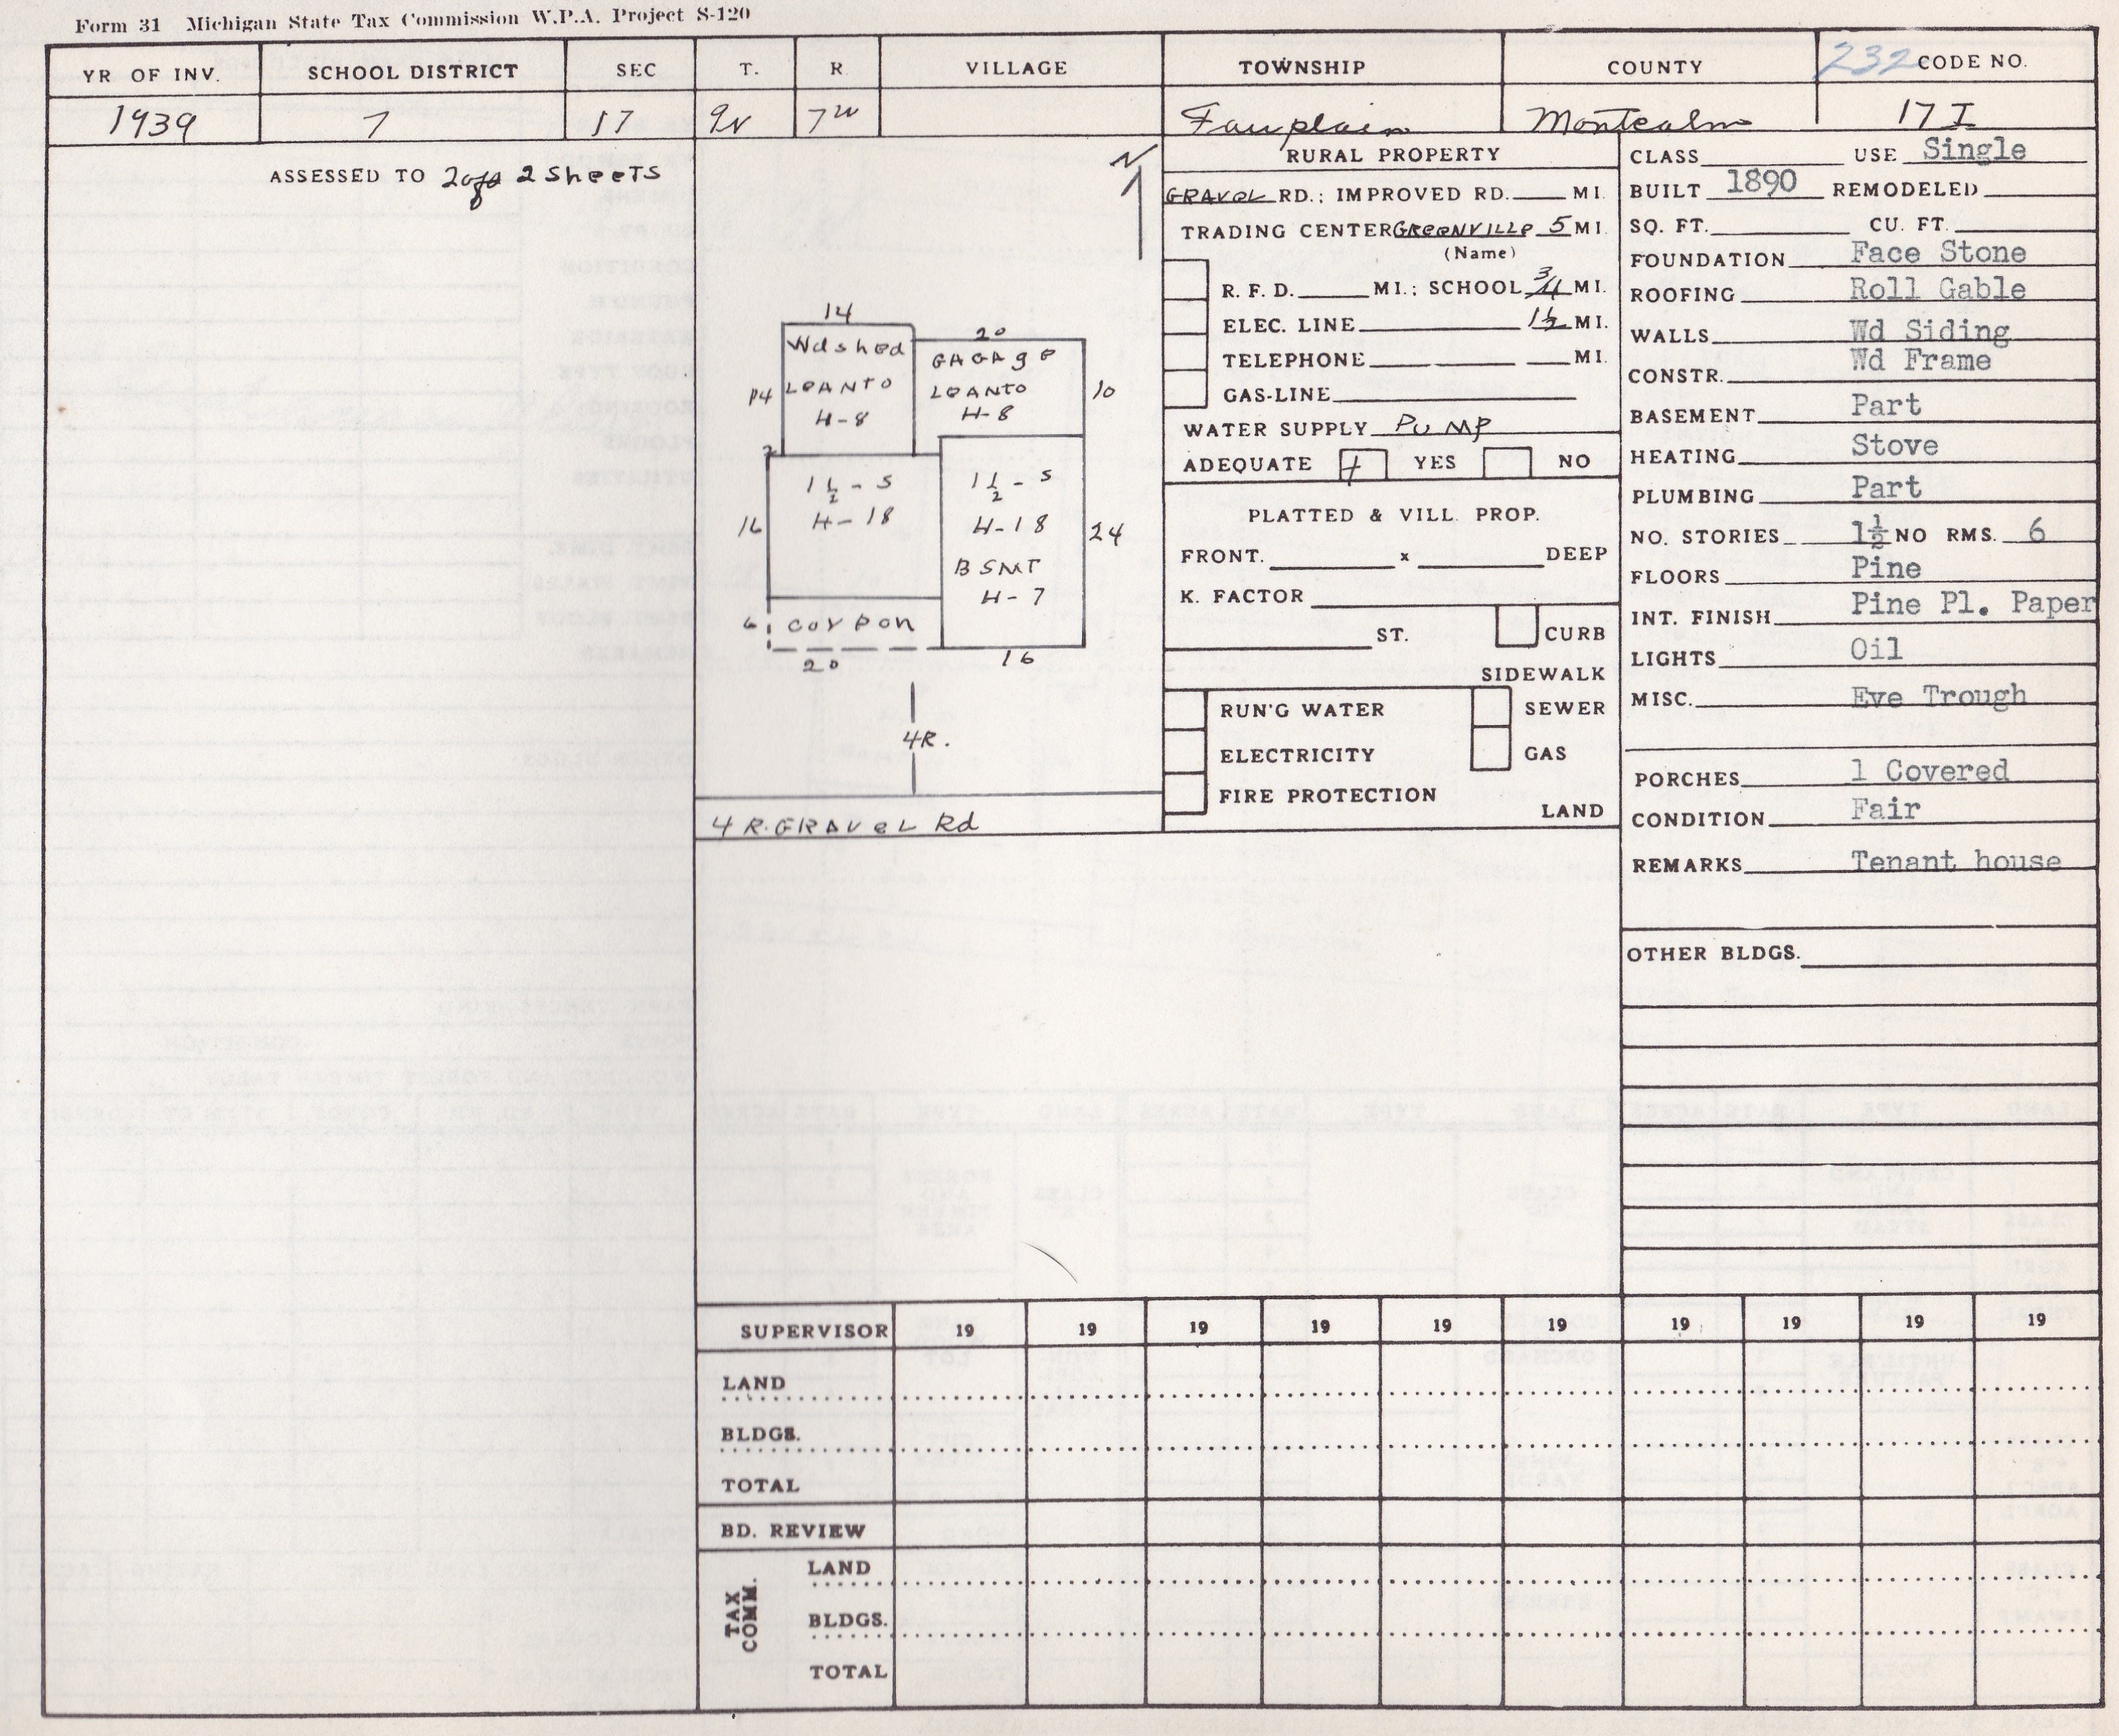 Form 31 Michigan State Tax Commission W.P.A. Project S-120
YR OF INV. SCHOOL DISTRICT SEC T. R VILLAGE TOWNSHIP COUNTY 232 CODE NO.
1939 7 17 9N 7W Fairplain Montcalm 17 I
ASSESSED TO 2 of 2 SheeTS
N
14
Wdshed
LeANTO
H-8
14
20
GAGAge
LeANTO
H-8
10
2
1 1/2 - S
H-18
16
1 1/2 - S
H-18
BSMT
H-7
24
6 corpon
20
16
4R.
4 R. GRAVeL Rd
RURAL PROPERTY
GRAVeL RD.; IMPROVED RD. MI.
TRADING CENTER GReeNVILLe 5 MI.
(Name)
R. F. D. MI.; SCHOOL 3/4 MI.
ELEC. LINE 1 1/2 MI.
TELEPHONE MI.
GAS-LINE
WATER SUPPLY PuMP
ADEQUATE + YES NO
PLATTED & VILL. PROP.
FRONT. x DEEP
K. FACTOR
ST. CURB
SIDEWALK
RUN'G WATER SEWER
ELECTRICITY GAS
FIRE PROTECTION
LAND
CLASS USE Single
BUILT 1890 REMODELED
SQ. FT. CU. FT.
FOUNDATION Face Stone
ROOFING Roll Gable
WALLS Wd Siding
CONSTR. Wd Frame
BASEMENT Part
HEATING Stove
PLUMBING Part
NO. STORIES 1½ NO RMS. 6
FLOORS Pine
INT. FINISH Pine Pl. Paper
LIGHTS Oil
MISC. Eve Trough
PORCHES 1 Covered
CONDITION Fair
REMARKS Tenant house
OTHER BLDGS.
SUPERVISOR 19 19 19 19 19 19 19 19 19 19
LAND
BLDGS.
TOTAL
BD. REVIEW
TAX COMM.
LAND
BLDGS.
TOTAL